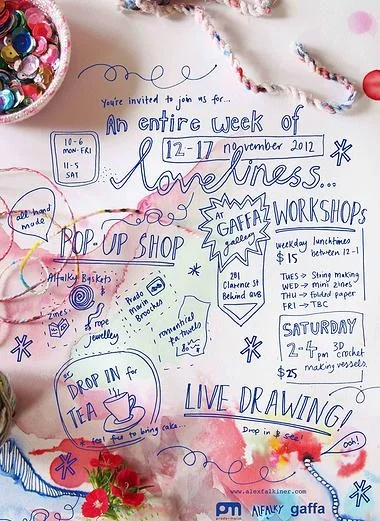 You're invited to join us for...
An entire week of
10-6
MON-FRI
11-5
SAT
12-17 november 2012
loveliness...
all hand
made
POP-UP SHOP
AT
GAFFA
gallery
281
Clarence St
Behind QVB
WORKSHOPS
weekday lunchtimes
$15 between 12-1
TUES → String making
WED → mini zines
THU → folded paper
FRI → TBC
Alfalky Baskets
zines
rope
jewellery
Prade
marin
Brooches
romantical
tea towels
SATURDAY
2-4pm 3D
crochet
making vessels.
$25
DROP IN for
TEA
& feel free to bring cake...
LIVE DRAWING!
Drop in & see!
ooh!
www.alexfalkiner.com
pm
ALFALKY
gaffa